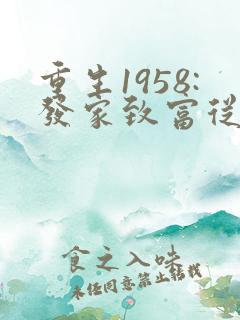 重生1958:
發家致富從
食之入味
未經同意禁止轉載